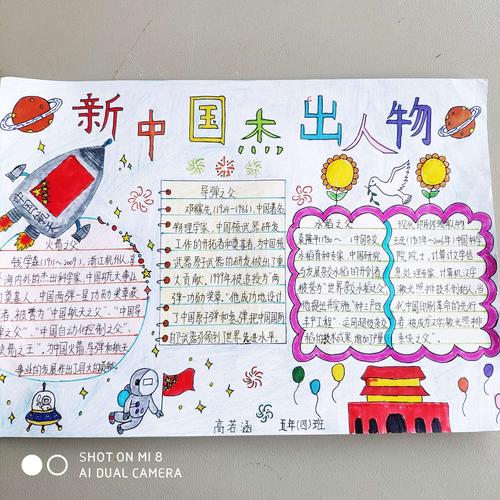 新中国杰出人物
中国航天
火箭之父
钱学森(1911~2009),浙江杭州人。
海内外的杰出科学家,中国航天事业
的奠基人,中国两弹一星功勋奖章获
者,被誉为"中国航天之父","中国导
弹之父","中国自动化控制之父",
"火箭之王",为中国火箭、导弹和航天
事业的发展作出了巨大的贡献。
导弹之父
邓稼先,(1924~1986),中国著名
物理学家,中国核武器研发
工作的开拓者和奠基者,为中国核
武器、原子武器的研发做出了重
大贡献,1999年被追授为"两
弹一功勋奖章。"他成功地设计
了中国原子弹和氢弹,把中国国防
自卫武器引领到了世界先进水平。
水稻之父
袁隆平(1930~ )中国杂交
水稻育种专家,中国研究
与发展杂交水稻的开创者,
被誉为"世界杂交水稻之父"
他提出并实施"种三产四
丰产工程",运用超级杂交
稻的技术成果,
现代
王选(1937~2006年)中国科学
院院士,计算机文字信
息处理专家,计算机汉字
激光照排技术创始人,当
代中国印刷革命的先行
者,被成为汉字激光照排
系统之父"。
高若涵 五年(四)班
SHOT ON MI 8
AI DUAL CAMERA